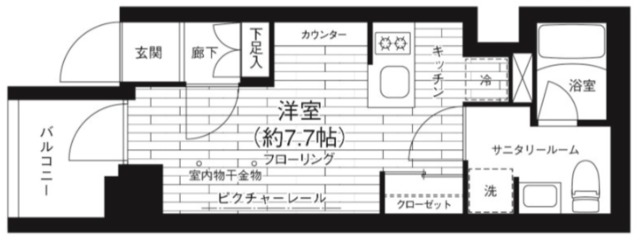 玄関
廊下
下足入
カウンター
キッチン
冷
浴室
バルコニー
洋室
(約7.7帖)
フローリング
室内物干金物
ピクチャーレール
クローゼット
サニタリールーム
洗